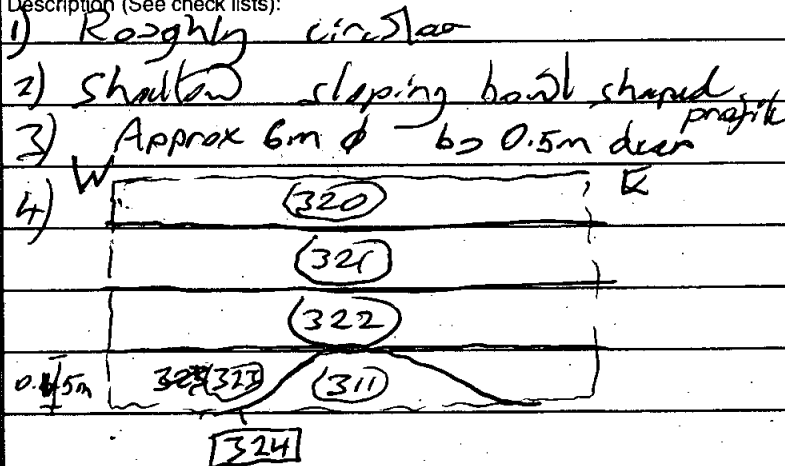 Description (See check lists):
1) Roughly circular
2) Shallow sloping bowl shaped profile
3) Approx 6m ϕ by 0.5m deep
4) W E
320
321
322
0.5m 323 311
324